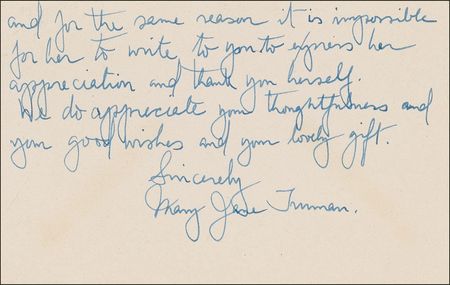 and for the same reason it is impossible
for her to write to you to express her
appreciation and thank you herself.
We do appreciate your thoughtfulness and
your good wishes and your lovely gift.
Sincerely
Mary Jane Truman.